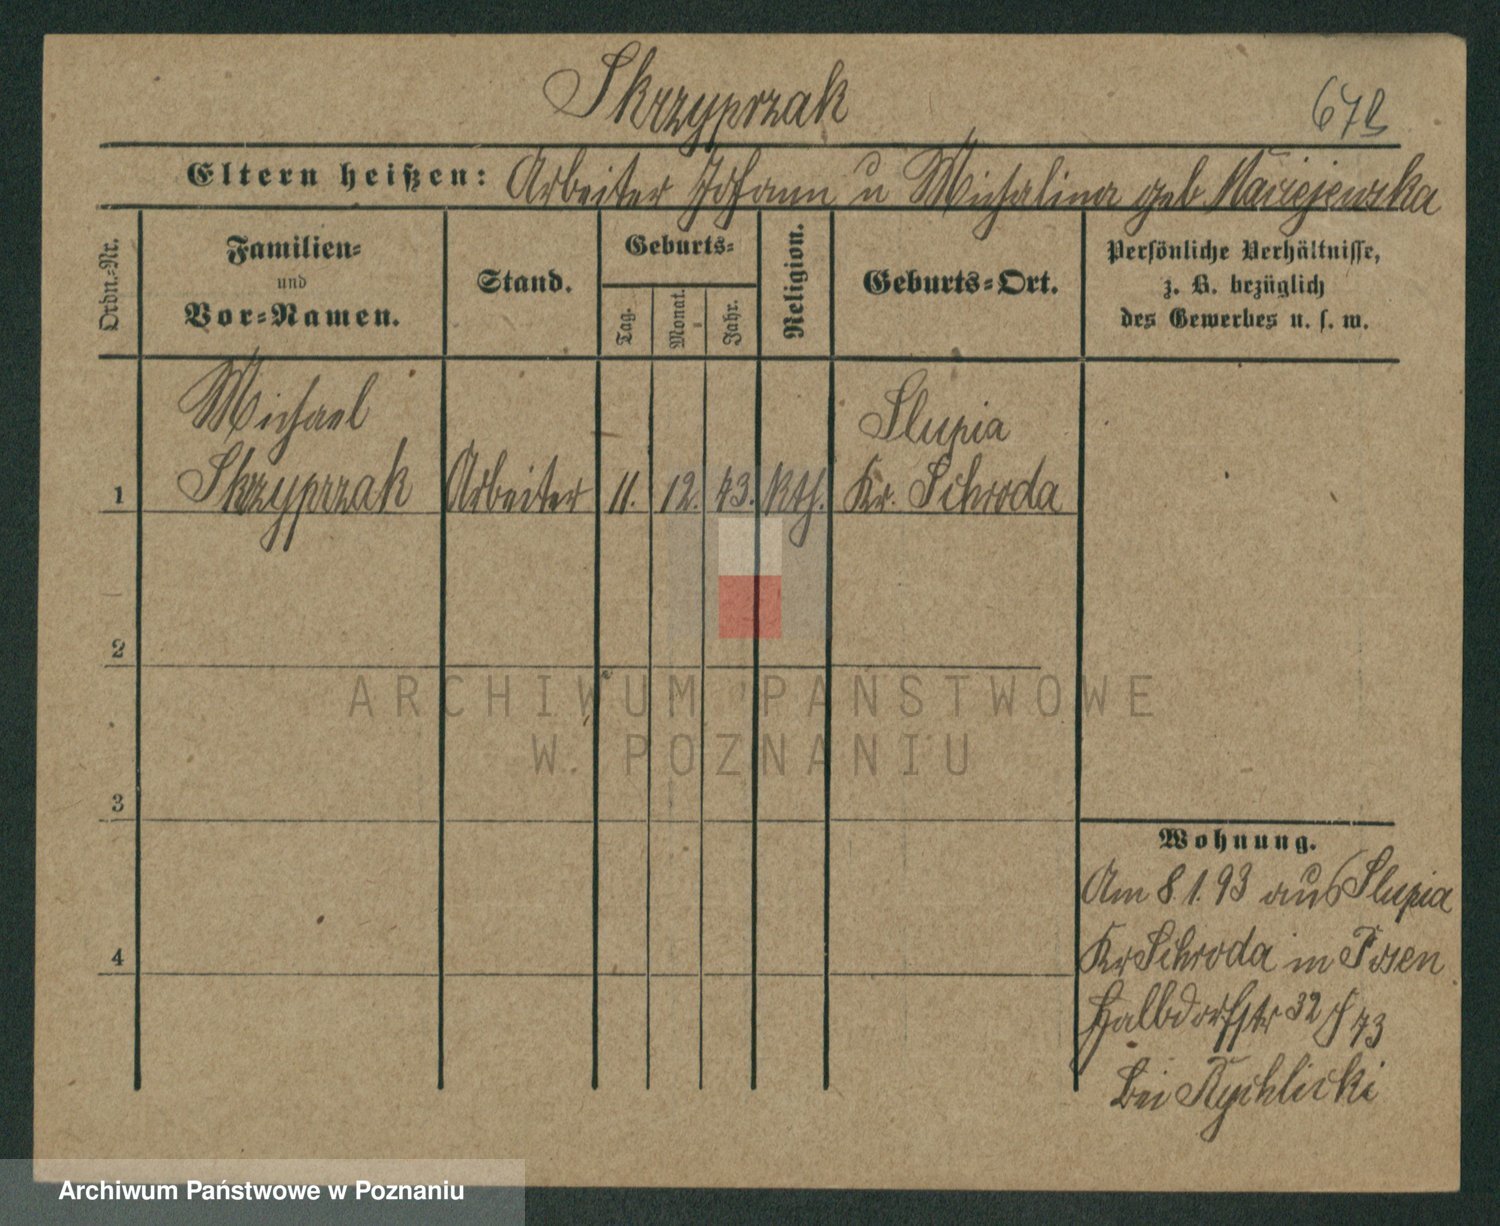 Skrzypczak
67
Eltern heißen: Arbeiter Johann u Michalina geb Maciejewska
Ordn.-Nr.
Familien-
und
Vor-Namen.
Stand.
Geburts-
Tag.
Monat.
Jahr.
Religion.
Geburts-Ort.
Persönliche Verhältnisse,
z. B. bezüglich
des Gewerbes u. s. w.
Michael
Slupia
1 Skrzypczak Arbeiter 11. 12. 43. kth. Kr. Schroda
2
ARCHIWUM PAŃSTWOWE
W POZNANIU
3
Wohnung.
Am 8.1.93 aus Slupia
4
Kr Schroda in Posen
Halbdorfstr 32 73
bei Rychlicki
Archiwum Państwowe w Poznaniu